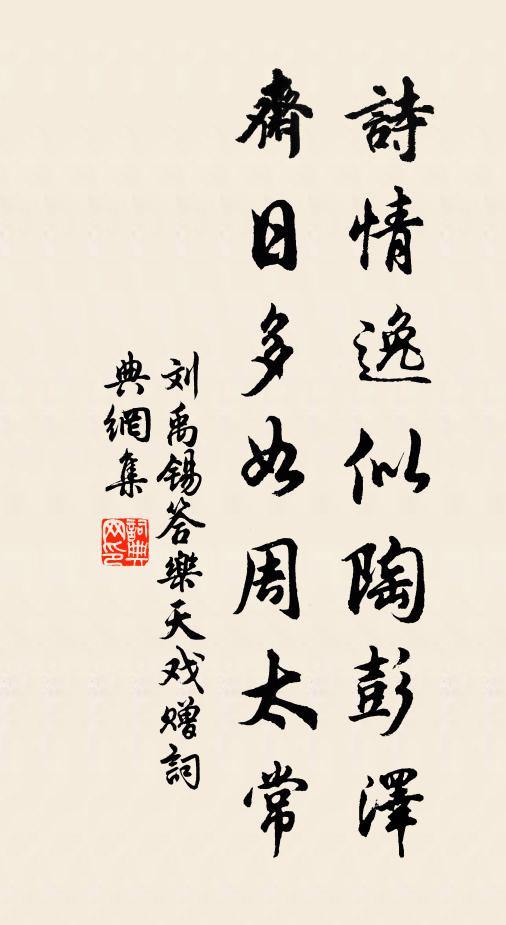 詩情逸似陶彭澤
齋日多如周太常
刘禹锡答樂天戏赠詞
典網集
詞典
网印